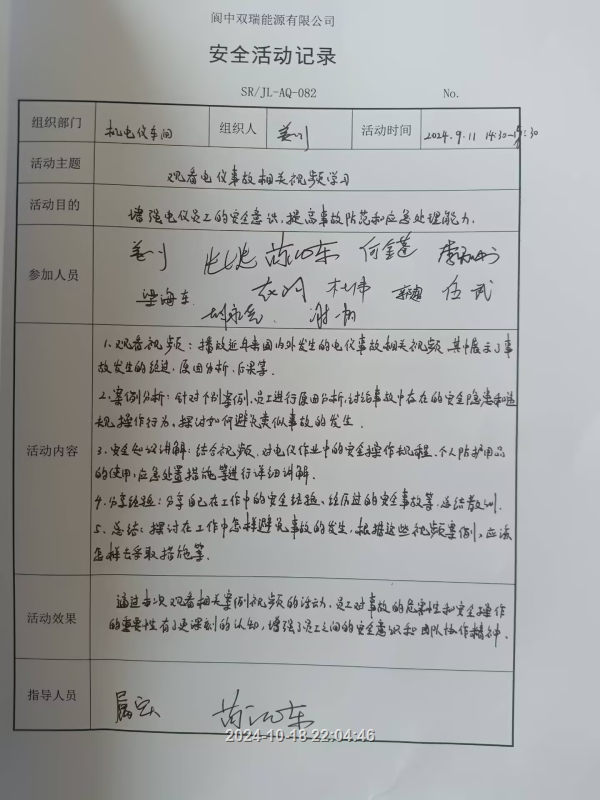 阆中双瑞能源有限公司
安全活动记录
SR/JL-AQ-082 No.
组织部门 机电仪车间 组织人 活动时间 2024.9.11 14:30-15:30
活动主题 观看电仪事故相关视频学习
活动目的 增强电仪员工的安全意识,提高事故防范和应急处理能力.
参加人员
何金蓬
梁海东 杜伟 任武
活动内容
1、观看视频:播放近年来国内外发生的电仪事故相关视频,其中展示了事
故发生的经过、原因分析、后果等.
2、案例分析:针对个别案例,员工进行原因分析,讨论事故中存在的安全隐患和违
规操作行为,探讨如何避免类似事故的发生.
3、安全知识讲解:结合视频,对电仪作业中的安全操作规程、个人防护用品
的使用,应急处置措施等进行详细讲解.
4、分享经验:分享自己在工作中的安全经验、经历过的安全事故等,总结教训.
5、总结:探讨在工作中怎样避免事故的发生,根据这些视频案例,应该
怎样去采取措施等.
活动效果
通过本次观看相关案例视频的活动,员工对事故的危害性和安全操作
的重要性有了更深刻的认知,增强了员工之间的安全意识和团队协作精神.
指导人员
2024-10-18 22:04:46